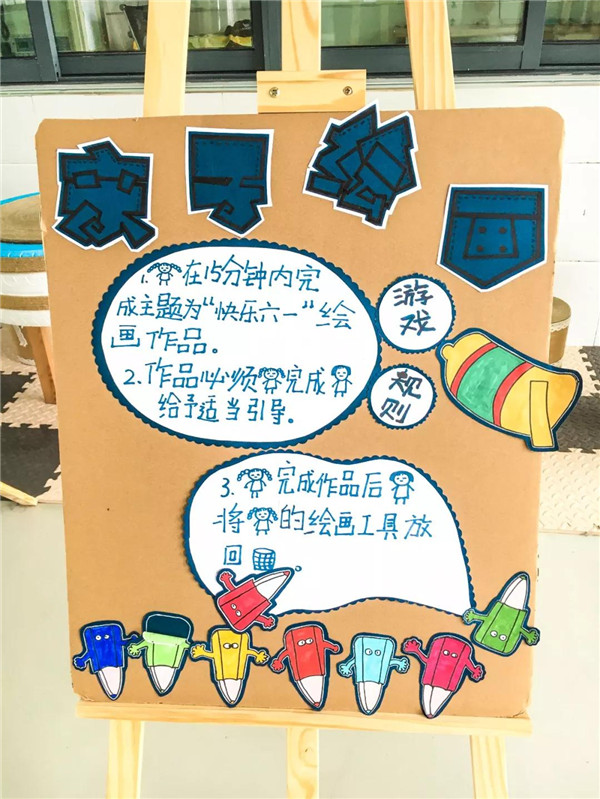 亲子绘画
1. 在15分钟内完
成主题为“快乐六一”绘
画作品。
2.作品必须 完成
给予适当引导。
游戏
规则
3. 完成作品后
将 的绘画工具放
回 。